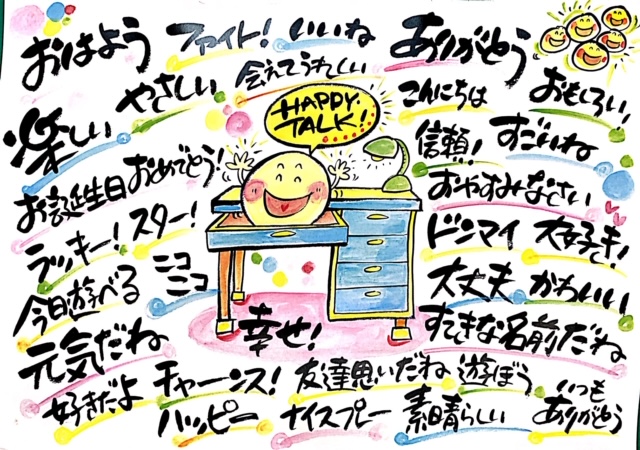 おはよう
ファイト！
いいね
ありがとう
やさしい
会えてうれしい
こんにちは
おもしろい！
HAPPY
TALK!
楽しい
信頼！
すごいね
お誕生日おめでとう！
おやすみなさい
ラッキー！
スター！
ドンマイ
大好き！
今日遊べる
ニコ
ニコ
大丈夫
かわいい
幸せ！
すてきな名前だね
元気だね
チャーンス！
友達思いだね
遊ぼう
いつも
ありがとう
好きだよ
ハッピー
ナイスプレー
素晴らしい